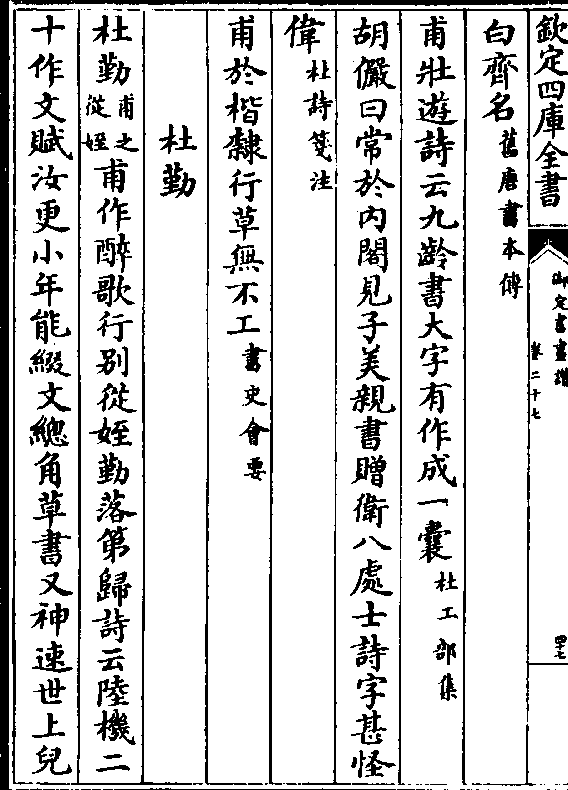 欽定四庫全書
御定書畫譜
卷二十七
四七
白齊名舊唐書本傳
甫壯遊詩云九齡書大字有作成一囊杜工部集
胡儼曰常於内閣見子美親書贈衛八處士詩字甚怪
偉杜詩箋注
甫於楷隸行草無不工書史會要
杜勤
杜勤甫之從姪甫作醉歌行别從姪勤落第歸詩云陸機二
十作文賦汝更小年能綴文總角草書又神速世上兒